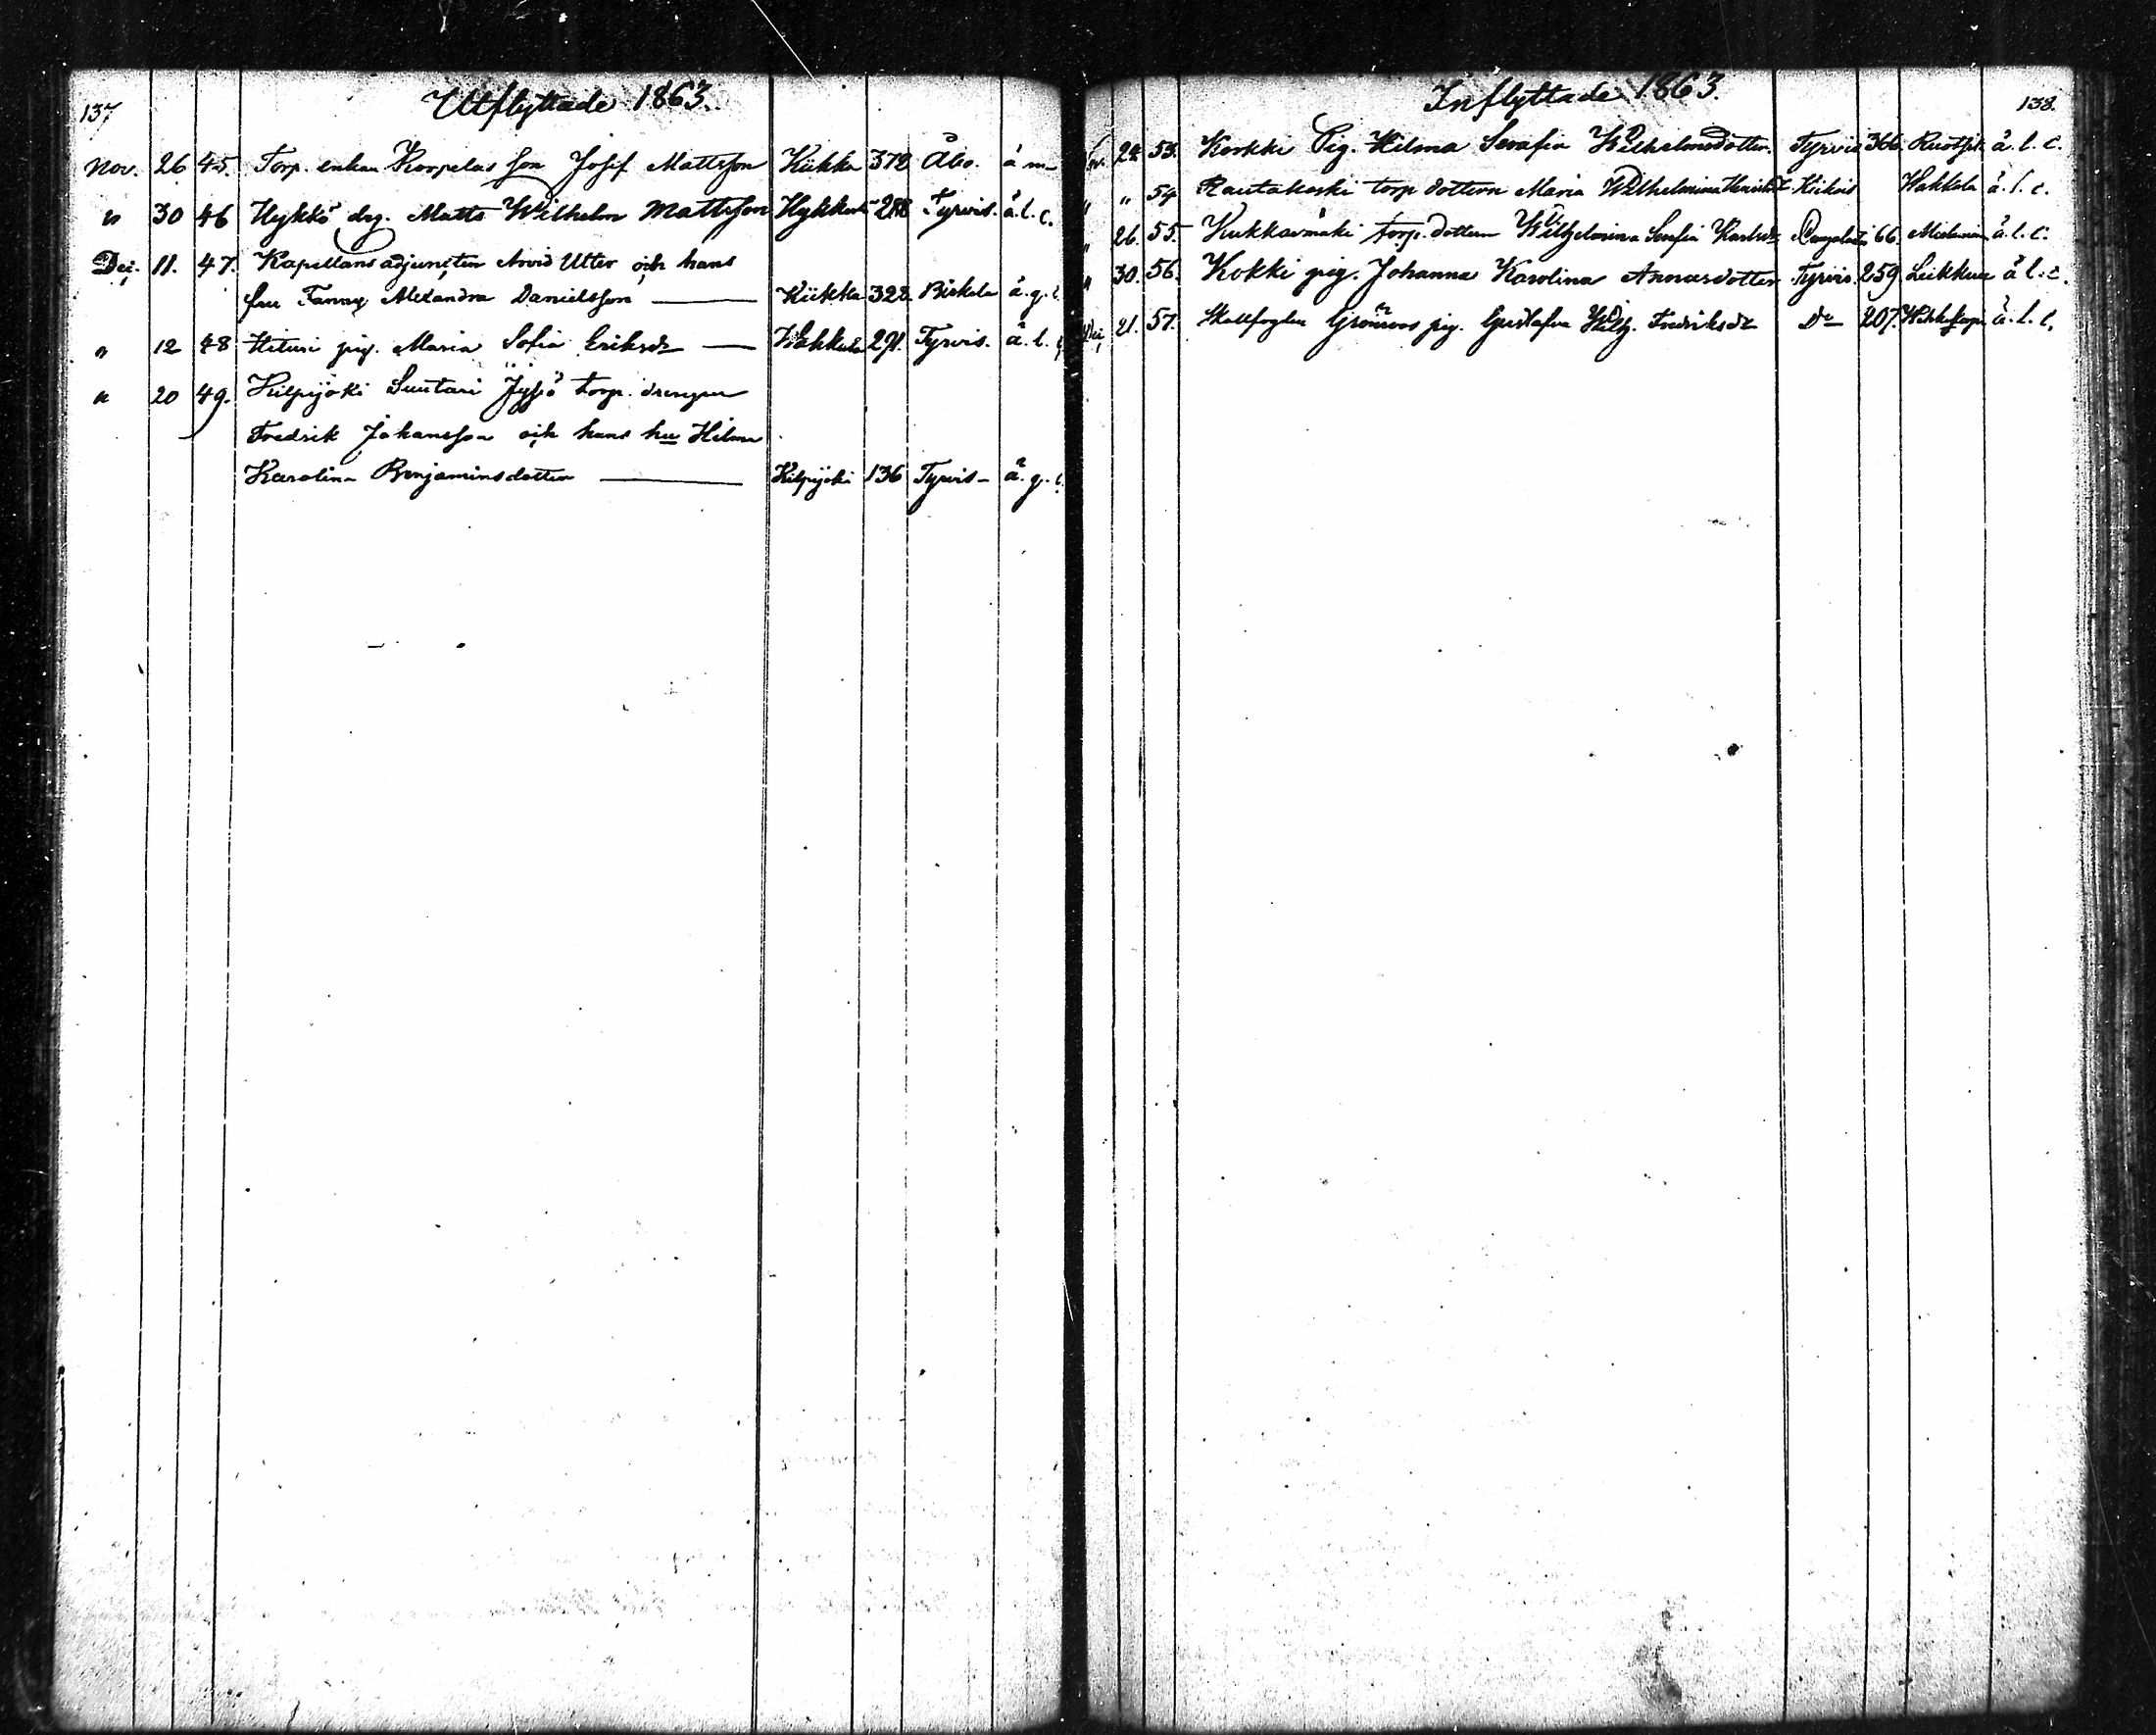 137
Utflyttade 1863.
Nov. 26 45. Torp. enkan Korpelas son Josef Mattsson Kiikka 372 Åbo. ä m
" 30 46 Hykkö drg. Matts Wilhelm Mattsson 288 Tyrvis. ä. l. c.
Dec. 11. 47. Kapellans adjuncten Arvid Utter och hans
fru Fanny Alexandra Danielsson — Kiikka 328 Birkala ä. g. c.
" 12 48 Hituri pig. Maria Sofia Eriksdr — 291. Tyrvis. ä. l. c.
" 20 49. Kilpijoki Suutari Jyssö torp. drengen
Fredrik Johansson och hans hu Hilma
Karolina Benjaminsdotter — Kilpijoki 136 Tyrvis ä. g. c.
Inflyttade 1863.
138.
Nov. 24 53. Korkki Pig. Hilma Serafia Wilhelmsdotter. Tyrvis 366. ä. l. c.
" " 54 Rautakoski torp dottern Maria Wilhelmina Kiikois Wakkola ä. l. c.
" 26. 55. Kukkarmäki torp. dottern Wilhelmina Serafia Karlsdr 66. ä. l. c.
" 30. 56. Kokki pig. Johanna Karolina Annasdotter Tyrvis. 259. Leikkuu ä l. c.
Dec 21. 57. Grönroos pig. Gustafva Wilh. Fredriksdr Do 207. ä. l. c.